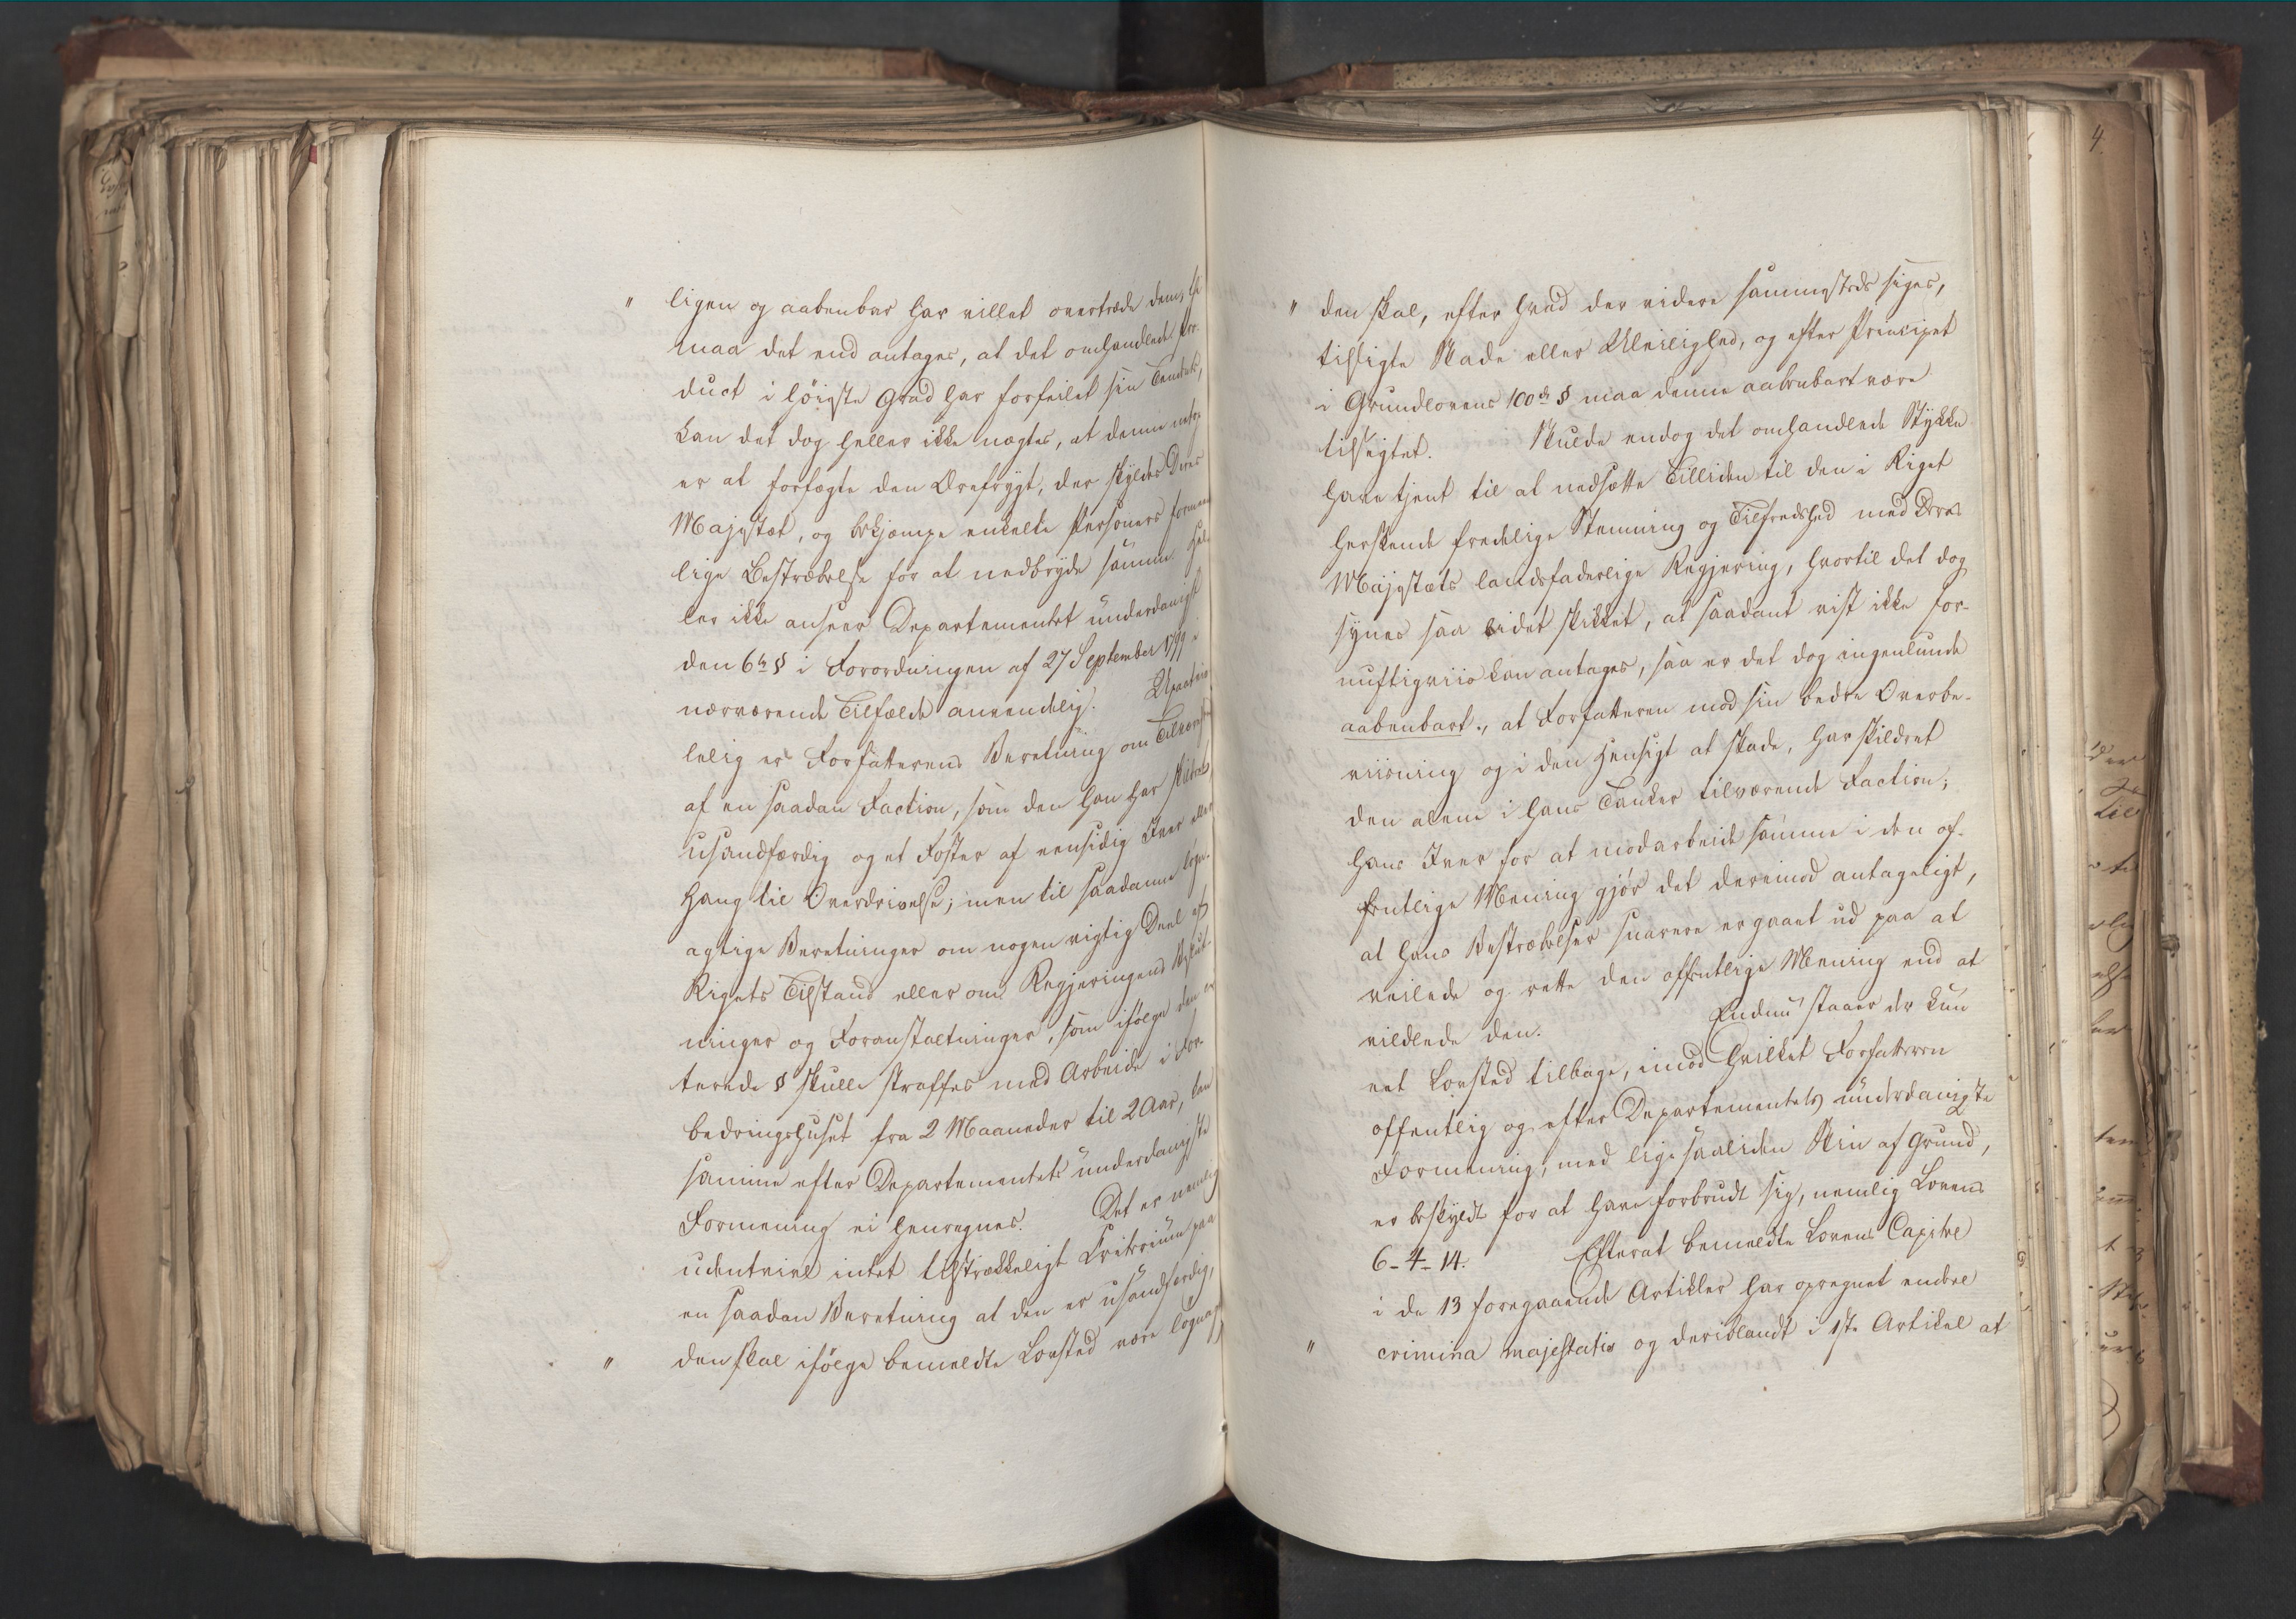 " ligen og aabenbar har villet overtræde dem, Er
maa det end antages, at det omhandlede Pro-
duct i høieste Grad har forfeilet sin Tendents,
kan det dog heller ikke nægtes, at denne netop
er at forfægte den Ærefrygt, der skyldes Deres
Majestæt, og bekjæmpe enkelte Personers formeent-
lige Bestræbelse for at nedbryde samme. Hel-
ler ikke anseer Departementet underdanigst
den 6te § i Forordningen af 27 September 1799 i
nærværende Tilfælde anvendelig. Upaatviv-
lelig er Forfatterens Beretning om Tilværelsen
af en saadan Faction, som den han har skildret,
usandfærdig og et Foster af eensidig Iver eller
Hang til Overdrivelse; men til saadanne løgn-
agtige Beretninger om nogen vigtig Deel af
Rigets Tilstand eller om Regjeringens Beslut-
ninger og Foranstaltninger, som ifølge den ci-
terede § skulle straffes med Arbeide i For-
bedringshuset fra 2 Maaneder til 2 Aar, kan
samme efter Departementets underdanigste
Formening ei henregnes. Det er nemlig
udentvivl intet tilstrækkeligt Criterium paa
en saadan Beretning at den er usandfærdig,
" den skal ifølge bemeldte Lovsted være løgnagt
" den skal, efter hvad der videre sammesteds siges,
tilsigte Skade eller Uleilighed, og efter Principet
i Grundlovens 100de § maa denne aabenbart være
tilsigtet. Skulde endog det omhandlede Stykke
have tjent til at nedsætte Tilliden til den i Riget
herskende fredelige Stemning og Tilfredshed med Deres
Majestæts landsfaderlige Regjering, hvortil det dog
synes saa lidet skikket, at saadant vist ikke for-
nuftigviis kan antages, saa er det dog ingenlunde
aabenbart, at Forfatteren mod sin bedre Overbe-
viisning og i den Hensigt at skade, har skildret
den alene i hans Tanker tilværende Faction;
hans Iver for at modarbeide samme i den of-
fentlige Mening gjør det derimod antageligt,
at hans Bestræbelser snarere er gaaet ud paa at
veilede og rette den offentlige Mening end at
vildlede den. Endnu staaer der kun
eet Lovsted tilbage, imod hvilket Forfatteren
offentlig og efter Departementets underdanigste
Formening, med ligesaaliden Skin af Grund,
er beskyldt for at have forbrudt sig, nemlig Lovens
6-4-14. Efterat bemeldte Lovens Capitel
i de 13 foregaaende Artikler har opregnet endeel
" crimina majestatis og deriblandt i 1ste Artikel at